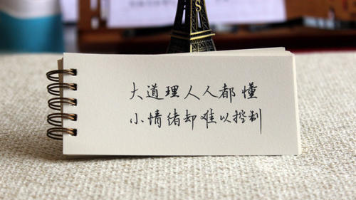 大道理人人都懂
小情绪却难以控制